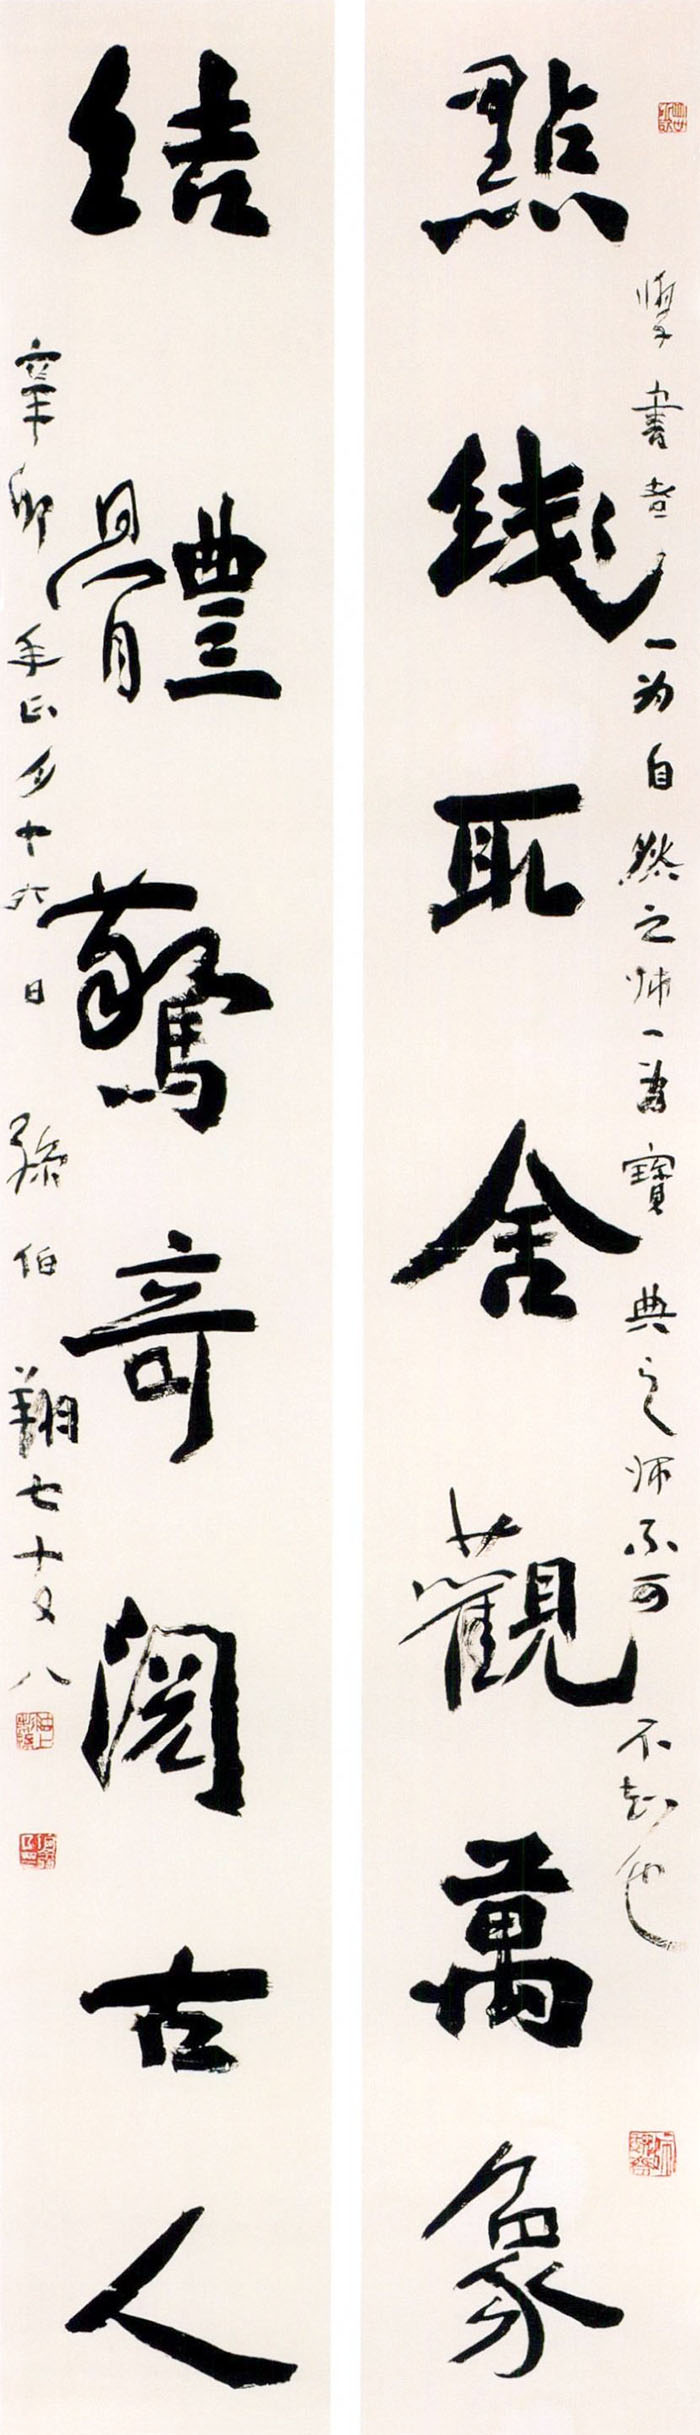 學書者一为自然之师一為寶典之师不可不知也
點线取舍觀萬象
结體驚奇阅古人
辛卯年正月十六日孫伯翔七十又八